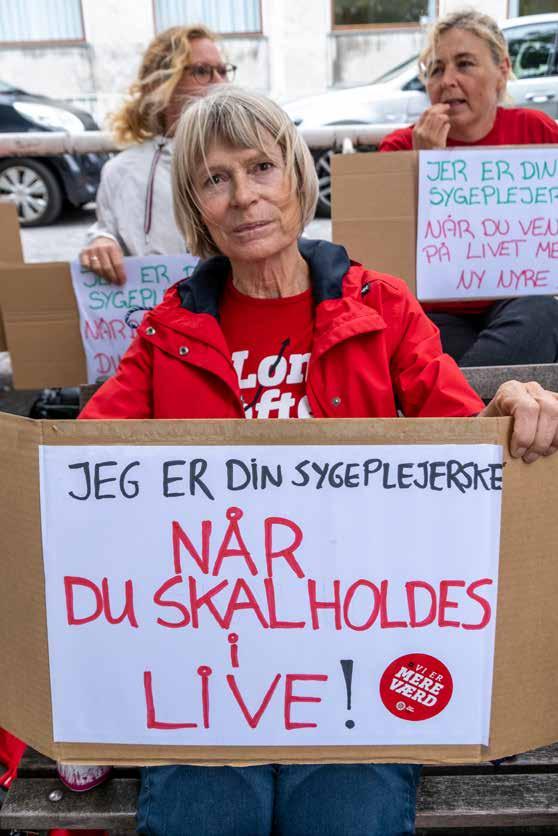 ER DIN
SYGEPLEJER
NÅR DU VEN
PÅ LIVET ME
NY NYRE
ER DI
SYGEPL
NÅR
DU
Lon
fte
JEG ER DIN SYGEPLEJERSKE
NÅR
DU SKAL HOLDES
i
LIVE!
#VI ER
MERE
VÆRD